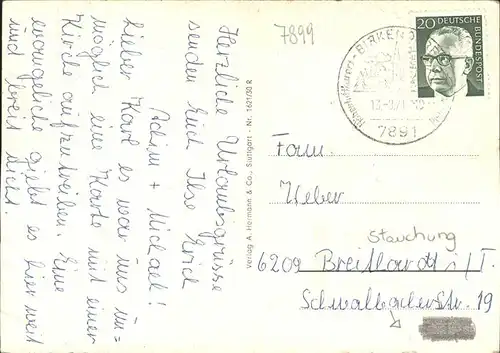 7899
Herzliche Urlaubsgrüsse
senden Euch Ilse Erich
Achim + Michael!
Lieber Karl es war uns un=
möglich eine Karte mit einer
Kirche aufzutreiben. Eine
evangeliche giebt es hier weit
und breit nicht.
Verlag A. Hermann & Co., Stuttgart - Nr. 1621/30 R
20 DEUTSCHE
BUNDESPOST
BIRKENDO
7891
Fam.
Weber
Stauchung
6209 Breithardt i/T.
Schwalbacherstr. 19